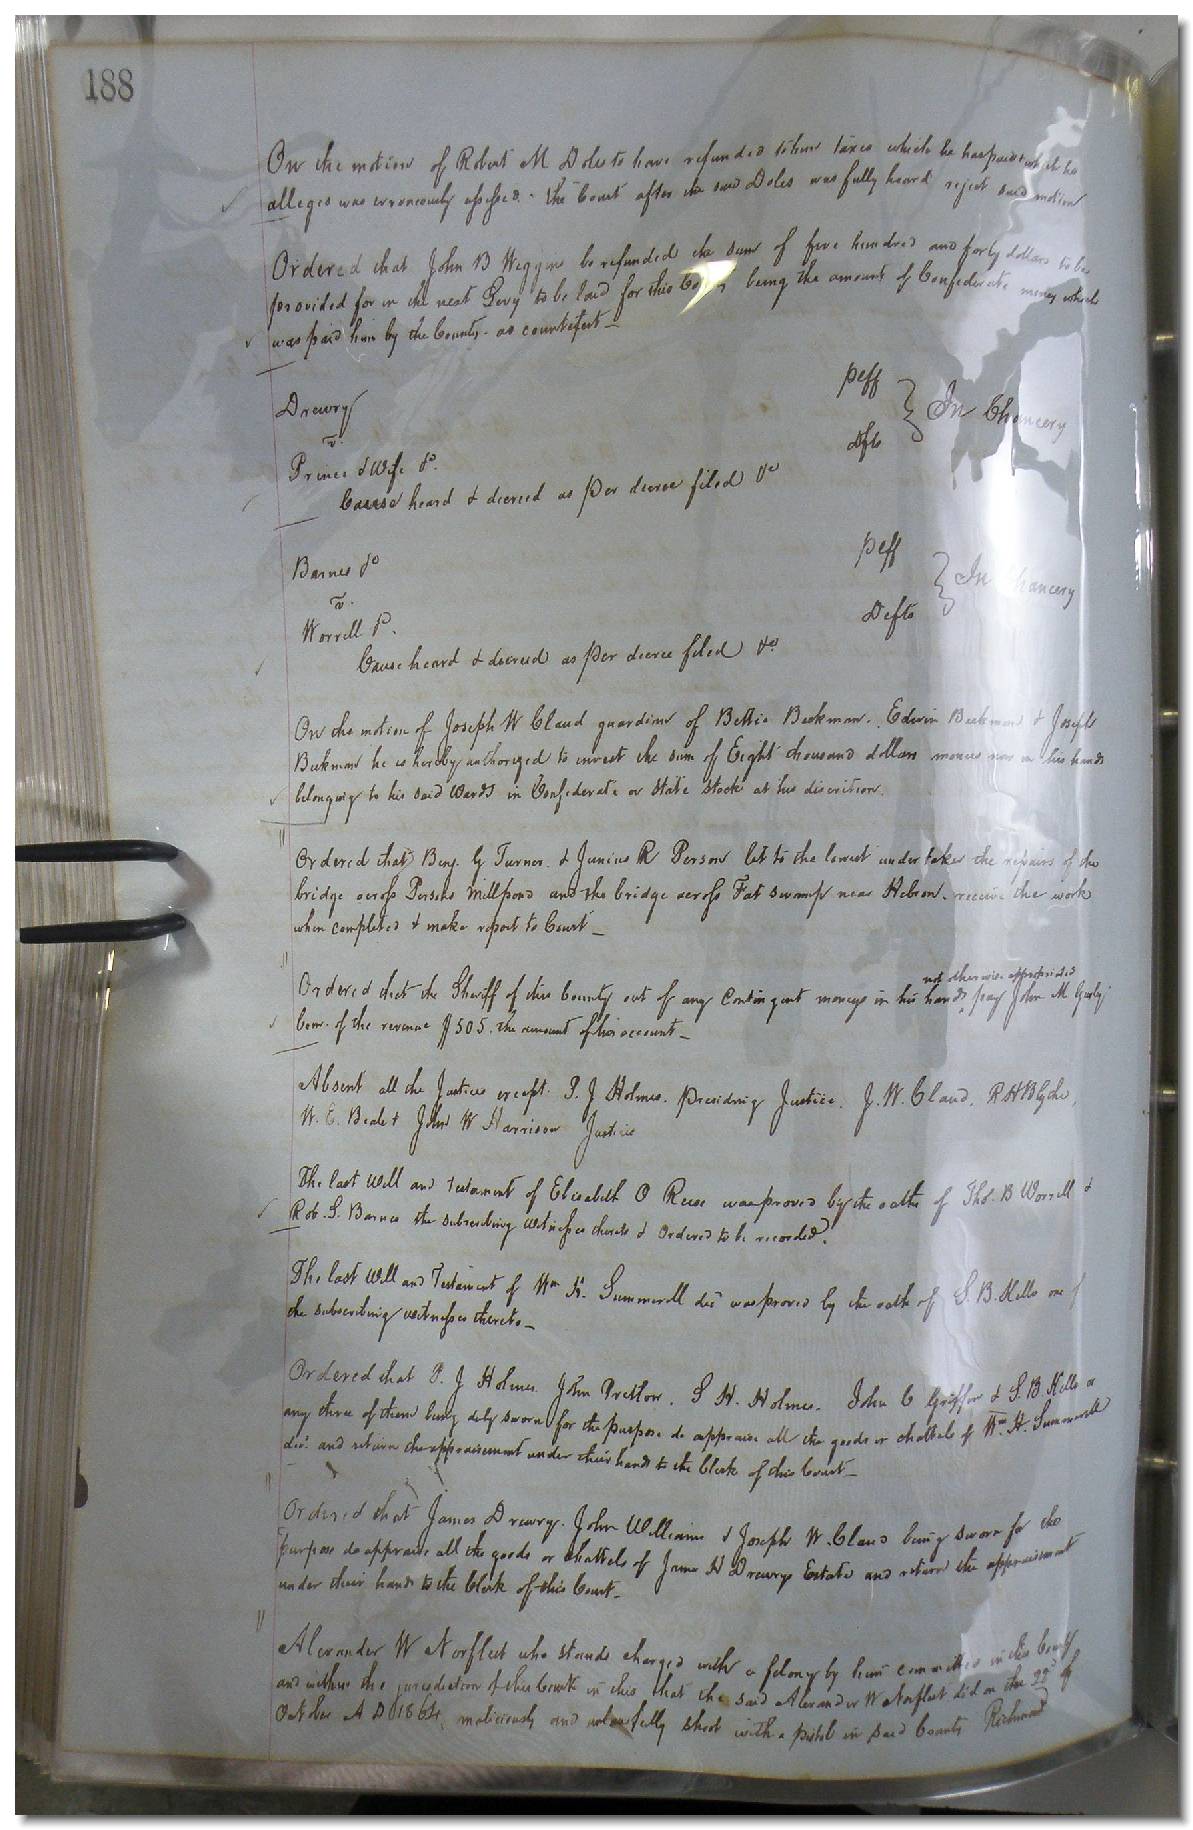 188
On the motion of Robert M Doles to have refunded to him taxes which he has paid which he
alleges was erroneously assessed. - The Court after the said Doles was fully heard reject said motion
Ordered that John B Wiggins be refunded the sum of five hundred and forty dollars to be
provided for in the next Levy to be laid for this being the amount of Confederate money which
was paid him by the County as counterfeit
Drewry Peff
v. In Chancery
Prince & Wife &c. Dfts
Cause heard & decreed as per decree filed &c
Barnes &c Peff
v. In Chancery
Worrell &c. Defts
Cause heard & decreed as per decree filed &c
On the motion of Joseph W Claud guardian of Bettie Beekman. Edwin Beekman & Joseph
Beekman he is hereby authorized to invest the sum of Eight thousand dollars monies now in his hands
belonging to his said wards in Confederate or State stock at his discretion.
Ordered that Benj. G Turner & Junius R Person let to the lowest undertaker the repairs of the
bridge across Persons Millpond and the bridge across Fat swamp near Hebron. receive the work
when completed & make report to Court
not otherwise appropriated
Ordered that the Sheriff of this County out of any Contingent moneys in his hands pay John M Gurley
Com. of the revenue $505. the amount of his account
Absent all the Justices except. P. J Holmes. Presiding Justice. J. W. Claud. R H Blythe,
W. E. Beale & John W Harrison Justices
The last Will and testament of Elizabeth O Reese was proved by the oaths of Thos. B Worrell &
Rob. S. Barnes the subscribing witnesses thereto & Ordered to be recorded.
The last Will and Testament of Wm H. Summerell decd was proved by the oath of S. B. Kello one of
the subscribing witnesses thereto
Ordered that P. J Holmes. John Pretlow. S H. Holmes. John C Griffin & S. B. Kello or
any three of them being duly sworn for the purpose do appraise all the goods or chattels of Wm. H. Summerell
decd. and return the appraisement under their hands to the Clerk of this Court
Ordered that James Drewry. John Williams & Joseph W. Claud being sworn for the
purpose do appraise all the goods or chattels of James H Drewrys Estate and return the appraisement
under their hands to the Clerk of this Court
Alexander W Norfleet who stands charged with a felony by him committed in this County
and within the jurisdiction of this Court in this that the said Alexander W Norfleet did on the 22d of
October A D 1864, maliciously and unlawfully shoot with a pistol in said County Richmond